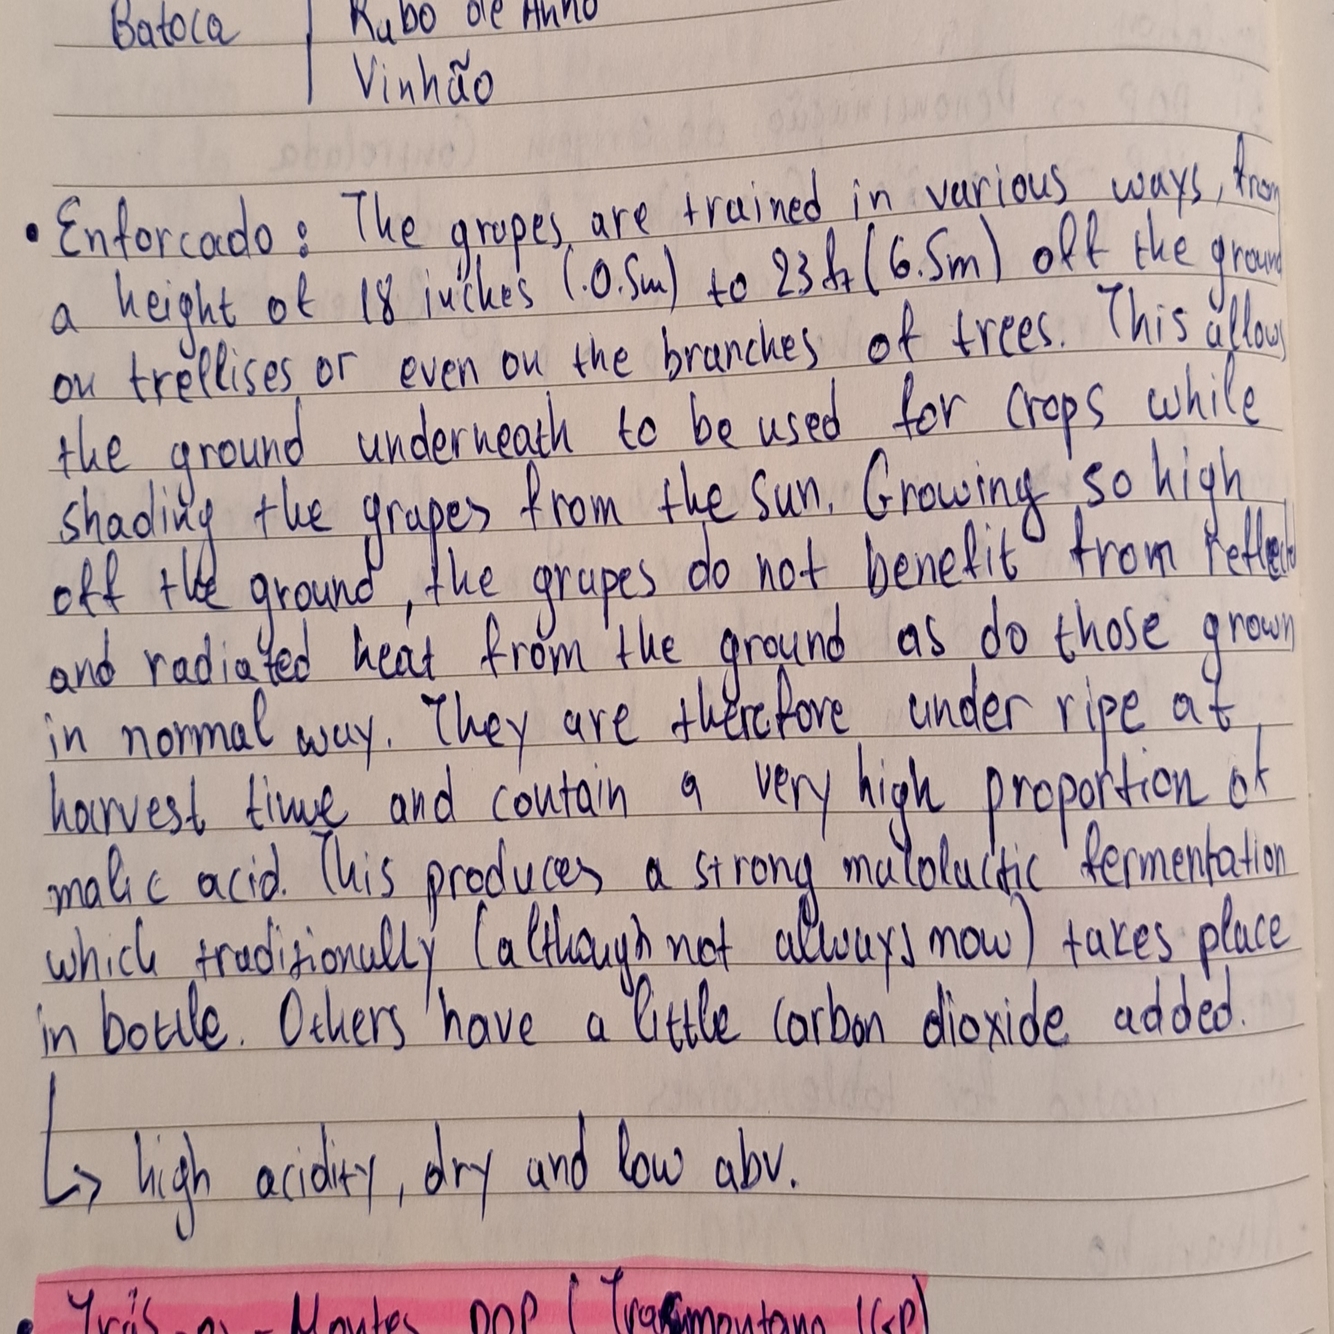 Batoca | Rabo de Anho
Vinhão
• Enforcado: The grapes are trained in various ways, from
a height of 18 inches (.0.5m) to 23 ft (6.5m) off the ground
on trellises or even on the branches of trees. This allows
the ground underneath to be used for crops while
shading the grapes from the sun. Growing so high
off the ground, the grapes do not benefit from reflected
and radiated heat from the ground as do those grown
in normal way. They are therefore under ripe at
harvest time and contain a very high proportion of
malic acid. This produces a strong malolactic fermentation
which traditionally (although not always now) takes place
in bottle. Others have a little carbon dioxide added.
↳ high acidity, dry and low abv.
• Trás-os-Montes DOP (Transmontano IGP)